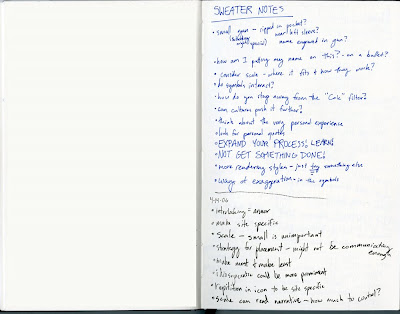 SWEATER NOTES
• small gun - ripped in pocket?
near left sleeve?
name engraved in gun?
• how am I putting my name on this? - on a bullet?
• consider scale - where it fits & how they work?
• do symbols interact?
• how do you stay away from the "Cute" filter?
• can culture push it farther?
• think about the very personal experience
• look for personal quotes
• EXPAND YOUR PROCESS! LEARN!
• NOT GET SOMETHING DONE!
• more rendering styles - just try something else
• ways of exaggeration - in the symbols
4-14-06
• interlocking = armor
• make site specific
• scale - small is unimportant
• strategy for placement - might not be communicating enough
• make most & make least
• could be more prominent
• repetition in icon to be site specific
• scale can read narrative - how much to control?